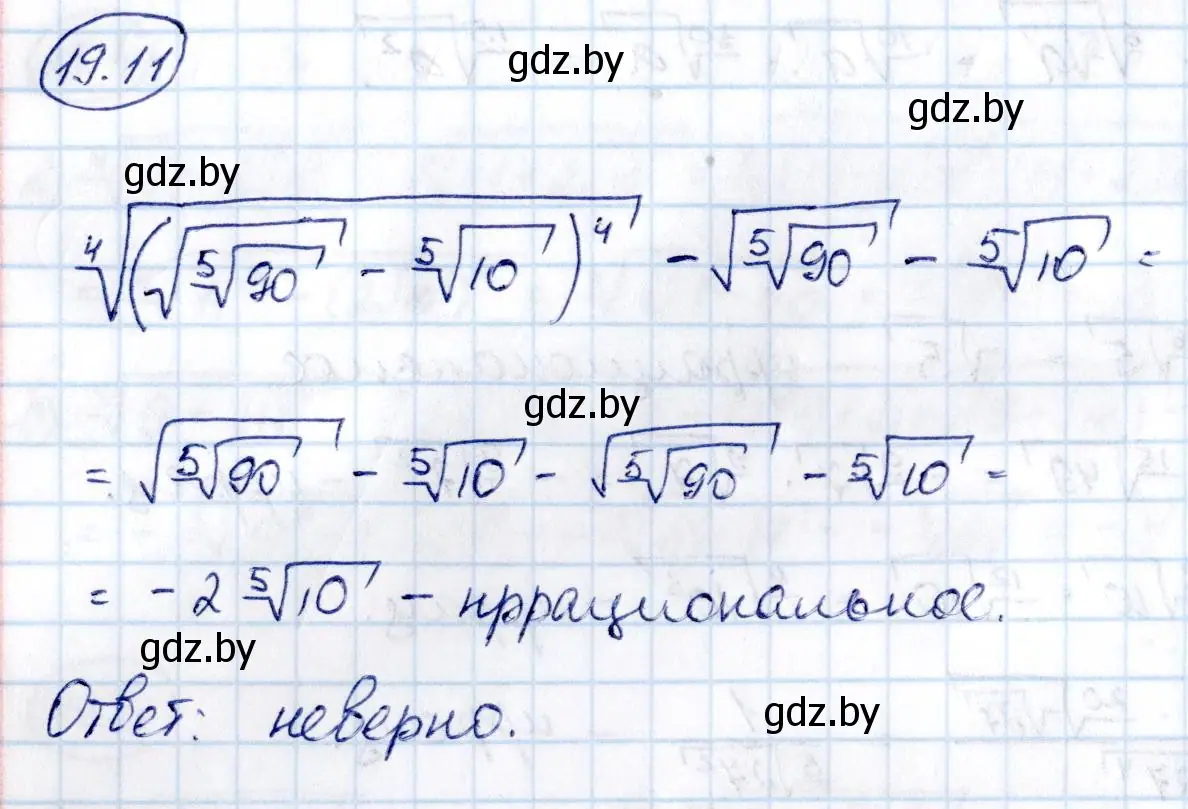 19.11
gdz.by
gdz.by
gdz.by
⁴√((√(⁵√90) - ⁵√10)⁴) - √(⁵√90) - ⁵√10 =
gdz.by
= √(⁵√90) - ⁵√10 - √(⁵√90) - ⁵√10 =
= -2 ⁵√10 - иррациональное.
gdz.by
Ответ: неверно.
gdz.by